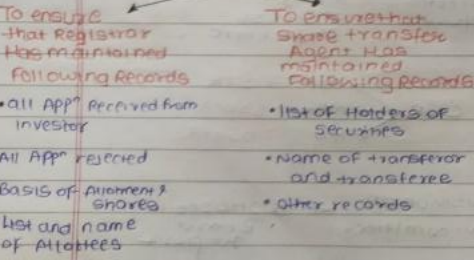 To ensure
that Registrar
Has maintained
Following Records
• all Appⁿ Received from
investor
All Appⁿ rejected
Basis of Allotment of
shares
List and name
of Allottees
To ensure that
Share transfer
Agent Has
maintained
Following Records
• list of Holders of
securities
• Name of transferor
and transferee
• other records